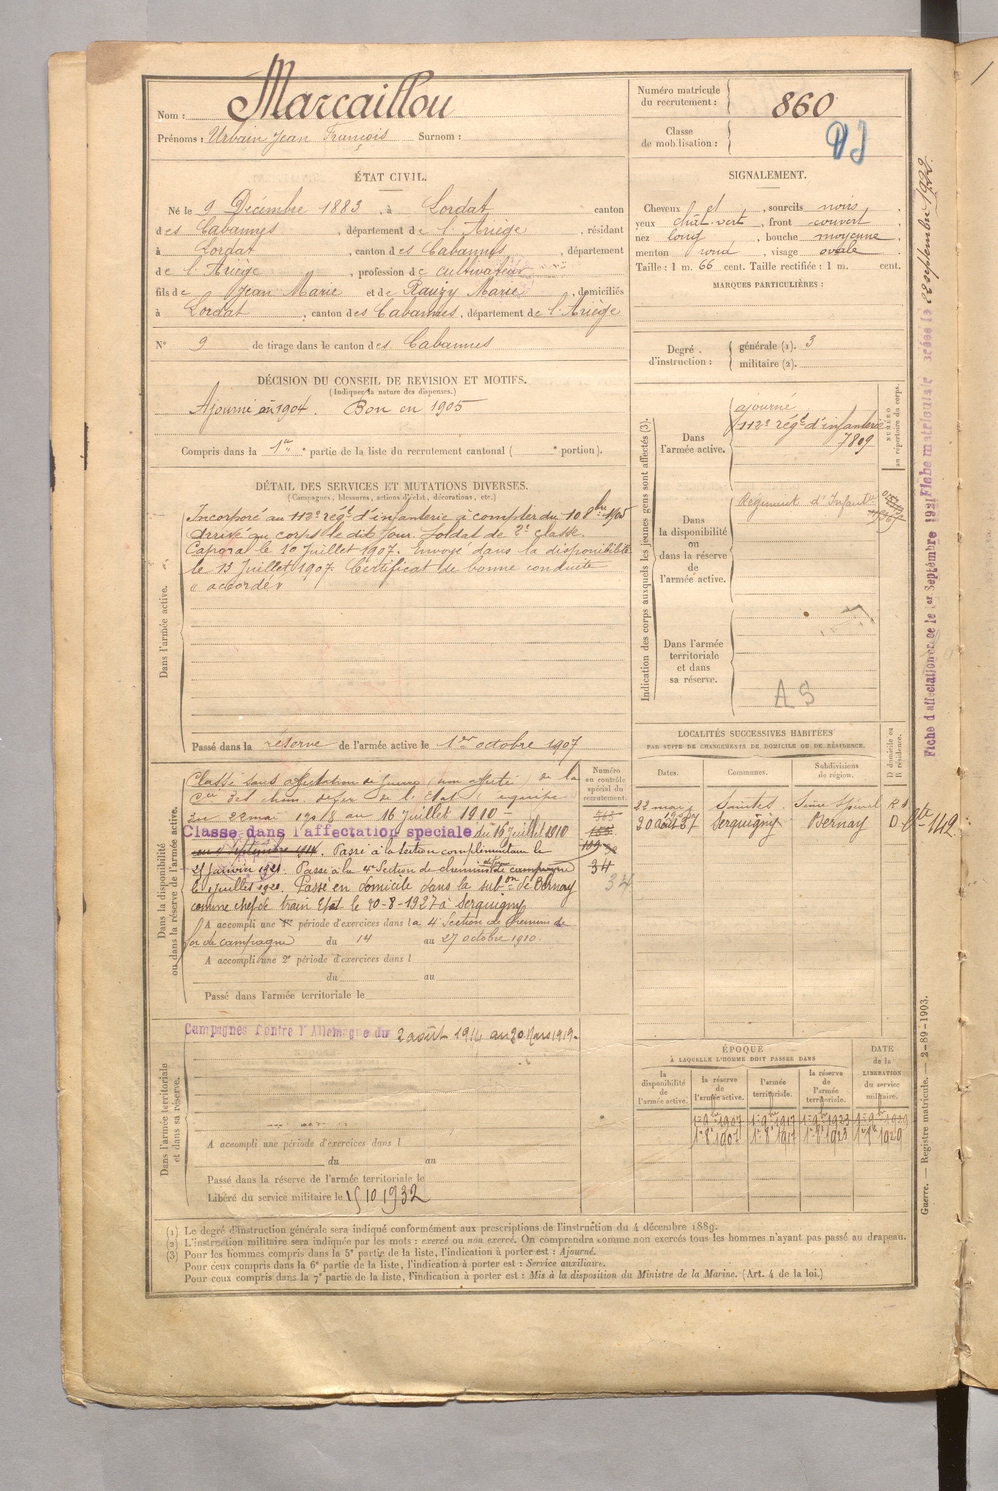 Nom : Marcaillou
Prénoms : Urbain Jean François Surnom :
Numéro matricule du recrutement : 860
Classe de mobilisation :
ÉTAT CIVIL.
Né le 9 Décembre 1883, à Lordat canton
des Cabannes, département de l'Ariège, résidant
à Lordat, canton des Cabannes, département
de l'Ariège, profession de cultivateur
fils de Jean Marie et de Rauzy Marie, domiciliés
à Lordat, canton des Cabannes, département de l'Ariège
N° 9 de tirage dans le canton des Cabannes
SIGNALEMENT.
Cheveux et, sourcils noirs,
yeux chât-vert, front couvert
nez long, bouche moyenne,
menton rond, visage ovale
Taille : 1 m. 66 cent. Taille rectifiée : 1 m. cent.
MARQUES PARTICULIÈRES :
Degré d'instruction : générale (1). 3
militaire (2).
DÉCISION DU CONSEIL DE REVISION ET MOTIFS.
(Indiquer la nature des dispenses.)
Ajourné en 1904. Bon en 1905
Compris dans la 1re partie de la liste du recrutement cantonal ( e portion).
DÉTAIL DES SERVICES ET MUTATIONS DIVERSES.
(Campagnes, blessures, actions d'éclat, décorations, etc.)
Dans l'armée active.
Incorporé au 112e régt d'infanterie à compter du 10 8bre 1905
Arrivé au corps le dit jour. Soldat de 2e classe.
Caporal le 10 Juillet 1907. Envoyé dans la disponibilité
le 13 Juillet 1907. Certificat de bonne conduite
"accordé"
Passé dans la réserve de l'armée active le 1er octobre 1907
Indication des corps auxquels les jeunes gens sont affectés (3).
Dans l'armée active.
ajourné
112e régt d'infanterie
7809
NUMÉRO au répertoire du corps.
Dans la disponibilité ou dans la réserve de l'armée active.
Régiment d'Infant
Dans l'armée territoriale et dans sa réserve.
A S
Dans la disponibilité ou dans la réserve de l'armée active.
Classé sans affectation de
de l'Etat
22 mai au 16 Juillet 1910
Classé dans l'affectation spéciale du 16 Juillet 1910
Passé à la section complémentaire le
21 janvier 1921. Passé à la 4e Section de chemins de fer de campagne
le Juillet 192 . Passé en domicile dans la subon de Bernay
comme chef de train Etat le 20-8-1927 à Serquigny
A accompli une 1e période d'exercices dans la 4 Section de chemins de
fer de campagne du 14 au 27 octobre 1910.
A accompli une 2e période d'exercices dans l
du au
Passé dans l'armée territoriale le
Numéro au contrôle spécial du recrutement.
34
34
LOCALITÉS SUCCESSIVES HABITÉES
PAR SUITE DE CHANGEMENTS DE DOMICILE OU DE RÉSIDENCE.
Dates. Communes. Subdivisions de région. D domicile ou R résidence.
22 mai Saintes R
20 août 27 Serquigny Bernay D.
Dans l'armée territoriale et dans sa réserve.
Campagnes Contre l'Allemagne du 2 août 1914 au 20 Mars 1919.
A accompli une période d'exercices dans l
du au
Passé dans la réserve de l'armée territoriale le
Libéré du service militaire le 15 10 1932
ÉPOQUE
À LAQUELLE L'HOMME DOIT PASSER DANS
la disponibilité de l'armée active.
la réserve de l'armée active.
l'armée territoriale.
la réserve de l'armée territoriale.
DATE de la LIBÉRATION du service militaire.
(1) Le degré d'instruction générale sera indiqué conformément aux prescriptions de l'instruction du 4 décembre 1889.
(2) L'instruction militaire sera indiquée par les mots : exercé ou non exercé. On comprendra comme non exercés tous les hommes n'ayant pas passé au drapeau.
(3) Pour les hommes compris dans la 5e partie de la liste, l'indication à porter est : Ajourné.
Pour ceux compris dans la 6e partie de la liste, l'indication à porter est : Service auxiliaire.
Pour ceux compris dans la 7e partie de la liste, l'indication à porter est : Mis à la disposition du Ministre de la Marine. (Art. 4 de la loi.)
Fiche d'affectation créée le 1er Septembre 1921
Fiche matriculaire créée le 22 septembre 1922.
Guerre. — Registre matricule. — 2-89-1903.